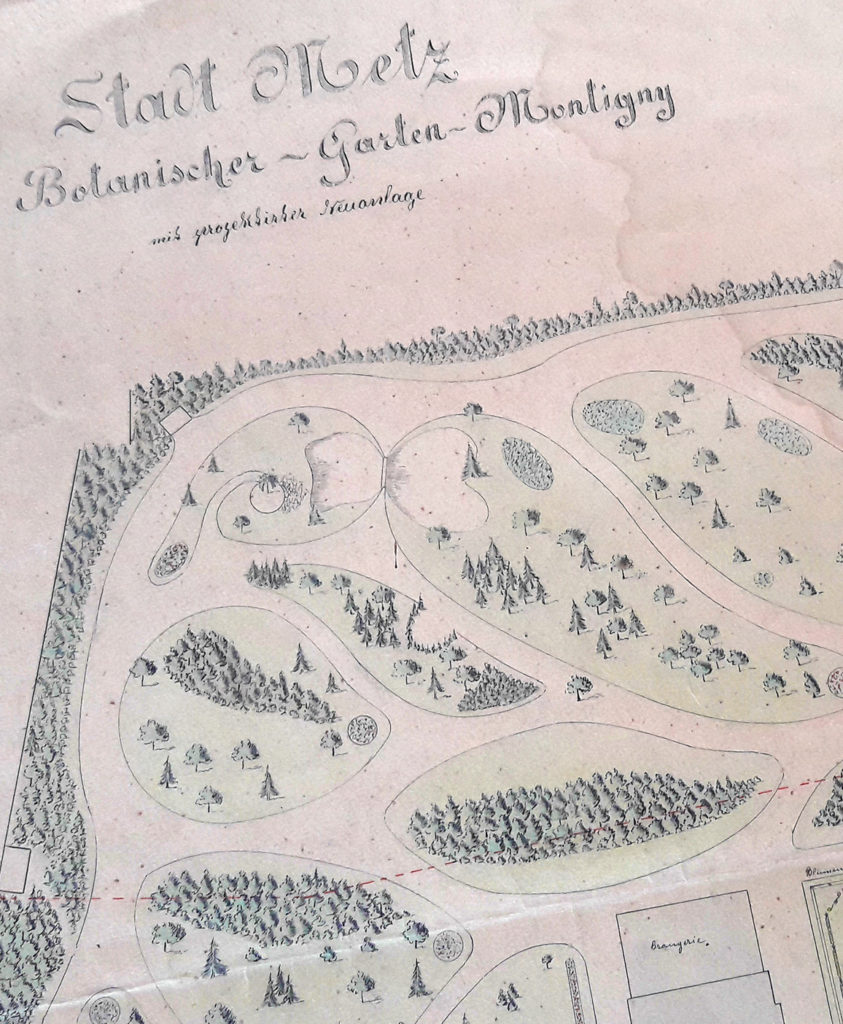 Stadt Metz
Botanischer-Garten-Montigny
mit projektirter Neuanlage
Orangerie.